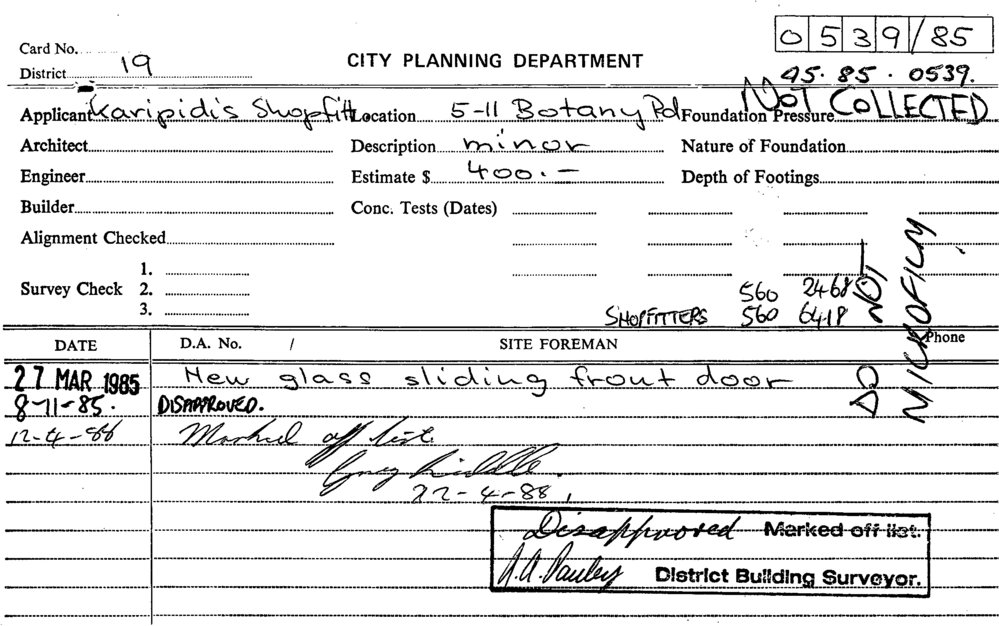 0539/85
Card No.
CITY PLANNING DEPARTMENT
District 19
45.85.0539.
NOT COLLECTED
Applicant Karipidis Shopfitt Location 5-11 Botany Rd Foundation Pressure
Architect Description minor Nature of Foundation
Engineer Estimate $ 400.— Depth of Footings
Builder Conc. Tests (Dates)
Alignment Checked
1.
Survey Check 2.
3.
560 2468
SHOPFITTERS 560 6418
DO NOT
MICROFILM
Phone
DATE D.A. No. / SITE FOREMAN
27 MAR 1985 New glass sliding front door
8-11-85. DISAPPROVED.
Marked off list.
22-4-88
Disapproved Marked off list.
District Building Surveyor.